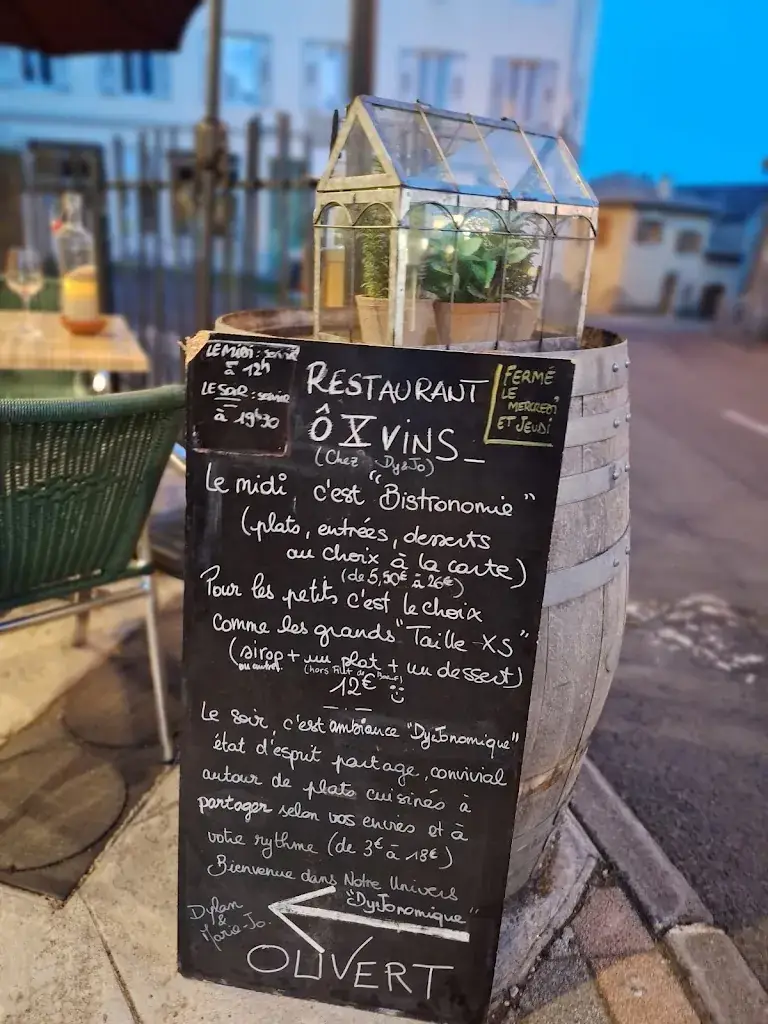 LE MIDI : service
à 12h
LE SOIR : service
à 19h30
RESTAURANT
Ô X VINS_
(Chez Dy&Jo)
FERMÉ
LE
MERCREDI
ET JEUDI
Le midi, c'est "Bistronomie"
(plats, entrées, desserts
au choix à la carte)
(de 5,50€ à 26€)
Pour les petits c'est le choix
comme les grands "Taille XS"
(sirop + un plat + un dessert)
ou autres (hors Filet de Boeuf)
12€
Le soir, c'est ambiance "Dy&Jonomique"
état d'esprit partage, convivial
autour de plats cuisinés à
partager selon vos envies et à
votre rythme (de 3€ à 18€)
Bienvenue dans Notre Univers
"DyJonomique"
Dylan
&
Marie-Jo
OUVERT